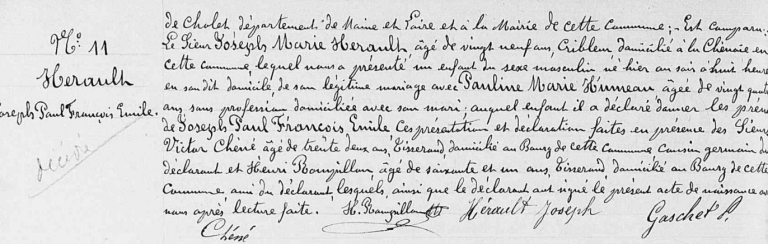 N.o 11
Herault
Joseph Paul François Emile.
décédé
de Cholet département de Maine et Loire et à la Mairie de cette Commune; - Est comparu
Le Sieur Joseph Marie Herault âgé de vingt neuf ans, Cribleur domicilié à la Chênaie en
cette commune lequel nous a présenté un enfant du sexe masculin né hier au soir à huit heure
en son dit domicile, de son légitime mariage avec Pauline Marie Humeau âgée de vingt quat
ans sans profession domiciliée avec son mari; auquel enfant il a déclaré donner les prén
de Joseph Paul François Emile Ces présentation et déclaration faites en présence des Sieurs
Victor Chéné âgé de trente deux ans, Tisserand, domicilié au Bourg de cette Commune Cousin germain du
déclarant et Henri Roupillon âgé de soixante et un ans, Tisserand domicilié au Bourg de cette
Commune ami du déclarant, lesquels, ainsi que le déclarant ont signé le présent acte de naissance av
nous après lecture faite. H. Roupillon Hérault Joseph Gaschet P.
Chéné